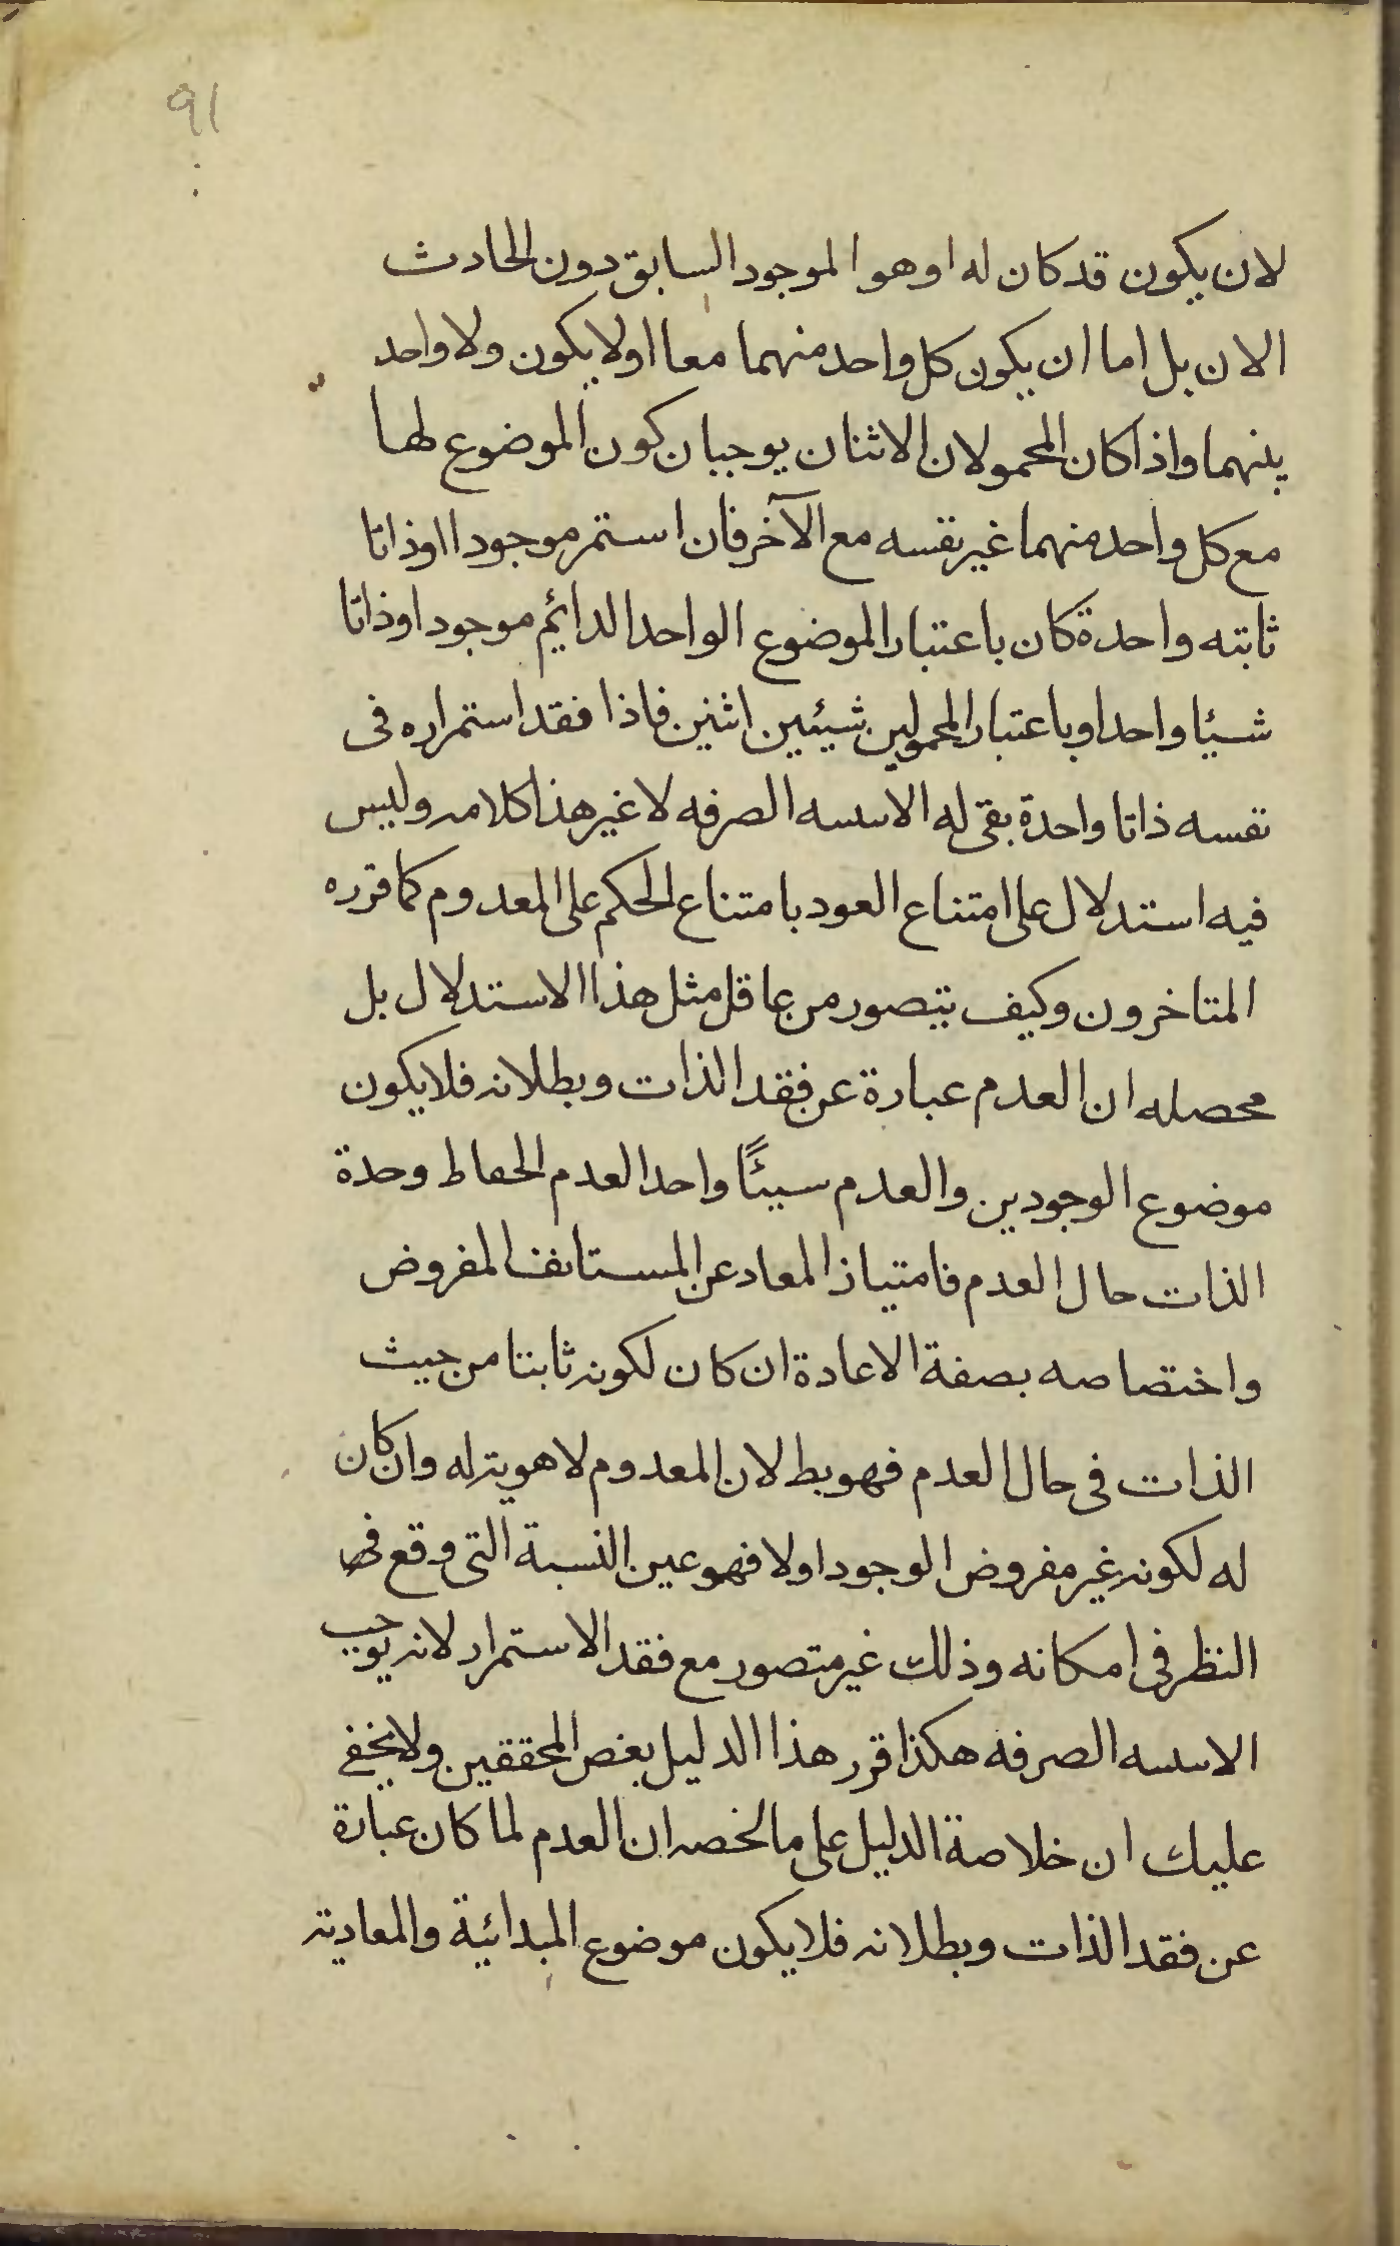 91
لان يكون قد كان له او هو الموجود السابق دون الحادث
الان بل اما ان يكون كل واحد منهما معا اولا يكون ولا واحد
منهما واذا كان المحمولان الاثنان يوجبان كون الموضوع لهما
مع كل واحد منهما غير نفسه مع الآخر فان استمر موجودا اوذاتا
ثابته واحدة كان باعتبار الموضوع الواحد الدائم موجود اوذاتا
شيئا واحدا وباعتبار المحمولين شيئين اثنين فاذا فقد استمراره فى
نفسه ذاتا واحدة بقى له الاسسه الصرفه لا غير هذا كلامه وليس
فيه استدلال على امتناع العود بامتناع الحكم على المعدوم كما قرره
المتاخرون وكيف يتصور من عاقل مثل هذا الاستدلال بل
محصله ان العدم عبارة عن فقد الذات وبطلانه فلا يكون
موضوع الوجودين والعدم سيئًا واحدا لعدم الحفاط وحدة
الذات حال العدم فامتياز المعاد عن المستانف المفروض
واختصاصه بصفة الاعادة ان كان لكونه ثابتا من حيث
الذات فى حال العدم فهو بط لان المعدوم لا هوية له وان كان
له لكونه غير مفروض الوجود اولا فهو عين النسبة التى وقع فيها
النظر فى امكانه وذلك غير متصور مع فقد الاستمرار لانه يوجب
الاسسه الصرفه هكذا قرر هذا الدليل بعض المحققين ولا يخفى
عليك ان خلاصة الدليل على ما لخصه ان العدم لما كان عبارة
عن فقد الذات وبطلانه فلا يكون موضوع المبدائية والمعادية